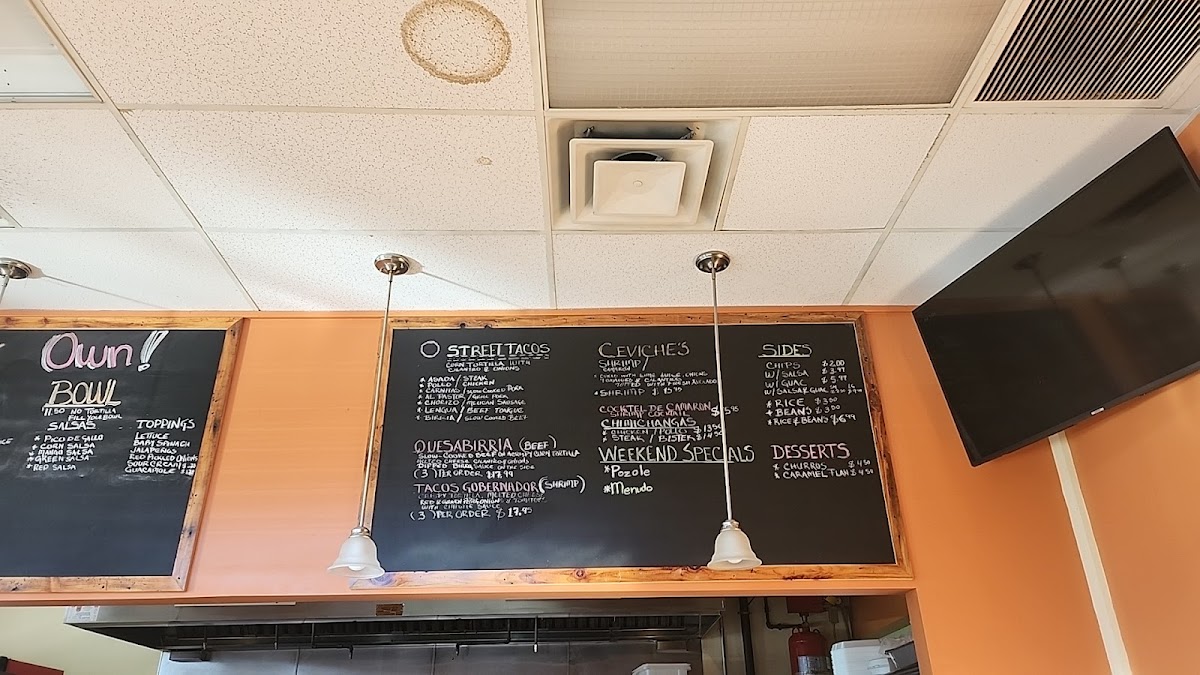 Own!
BOWL
11.50 NO TORTILLA
FILL YOUR BOWL
SALSAS
* PICO DE GALLO
* CORN SALSA
* MANGO SALSA
* GREEN SALSA
* RED SALSA
TOPPINGS
LETTUCE
BABY SPINACH
JALAPEÑOS
RED PICKLED ONIONS
SOUR CREAM
GUACAMOLE
STREET TACOS
CORN TORTILLA WITH
CILANTRO & ONIONS
* ASADA / STEAK
* POLLO / CHICKEN
* CARNITAS / SLOW COOKED PORK
* AL PASTOR / GRILL PORK
* CHORIZO / MEXICAN SAUSAGE
* LENGUA / BEEF TONGUE
* BIRRIA / SLOW COOKED BEEF
QUESABIRRIA (BEEF)
SLOW-COOKED BEEF ON A CRISPY CORN TORTILLA
MELTED CHEESE CILANTRO & ONIONS
DIPPED BIRRIA SAUCE ON THE SIDE
(3) PER ORDER $17.99
TACOS GOBERNADOR (SHRIMP)
CRISPY TORTILLA, MELTED CHEESE
RED & GREEN PEPPERS ONIONS & TOMATOES
WITH CHIPOTLE SAUCE
(3) PER ORDER $17.95
CEVICHE'S
SHRIMP /
CAMARON
COOKED WITH LIME JUICE, ONIONS
TOMATOES & CILANTRO
TOPPED WITH FRESH AVOCADO
* SHRIMP $15.95
COCKTEL DE CAMARON
SHRIMP COCKTAIL
CHIMICHANGAS
* CHICKEN / POLLO $13.50
* STEAK / BISTEK $14.50
WEEKEND SPECIALS
* Pozole
* Menudo
SIDES
CHIPS $2.00
W/ SALSA $3.99
W/ GUAC $5.99
W/ SALSA & GUAC
* RICE $3.00
* BEANS $3.00
* RICE & BEANS $6.99
DESSERTS
* CHURROS $4.50
* CARAMEL FLAN $4.50